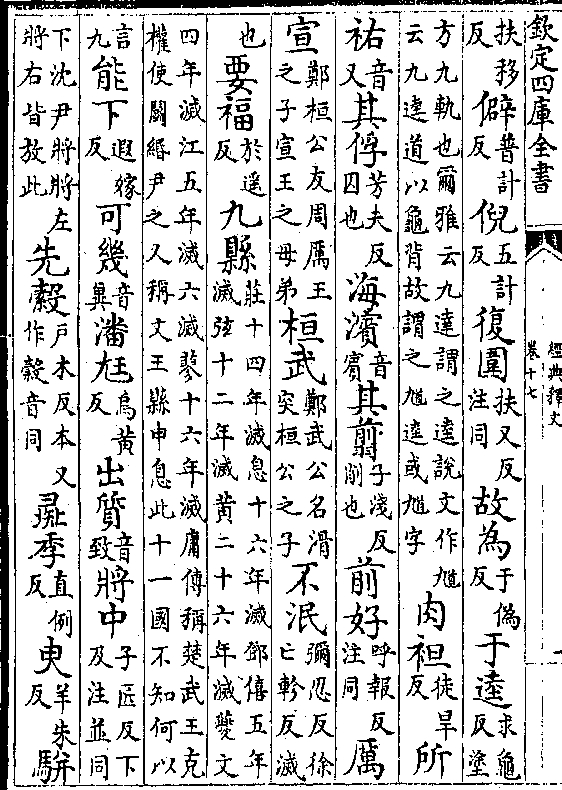 欽定四庫全書
經典釋文
卷十七
扶移反僻普計反倪五計反復圍扶又反注同故為于偽反于逵求龜反塗
方九軌也爾雅云九達謂之逵說文作馗云九逵道以龜背故謂之馗逵或馗字肉袒徒旱反所
祐音又其俘芳夫反囚也海濱音賓其翦子淺反削也前好呼報反注同厲
宣鄭桓公友周厲王之子宣王之母弟桓武鄭武公名滑突桓公之子不泯彌忍反徐亡軫反滅
也要福於遥反九縣莊十四年滅息十六年滅鄧僖五年滅弦十二年滅黄二十六年滅夔文
四年滅江五年滅六滅蓼十六年滅庸傳稱楚武王克權使鬭緡尹之又稱文王縣申息此十一國不知何以
言九能下遐嫁反可幾音冀潘尫烏黄反出質音致將中子匠反下及注並同
下沈尹將將左將右皆放此先縠戶木反本又作榖音同彘季直例反臾羊朱反騈